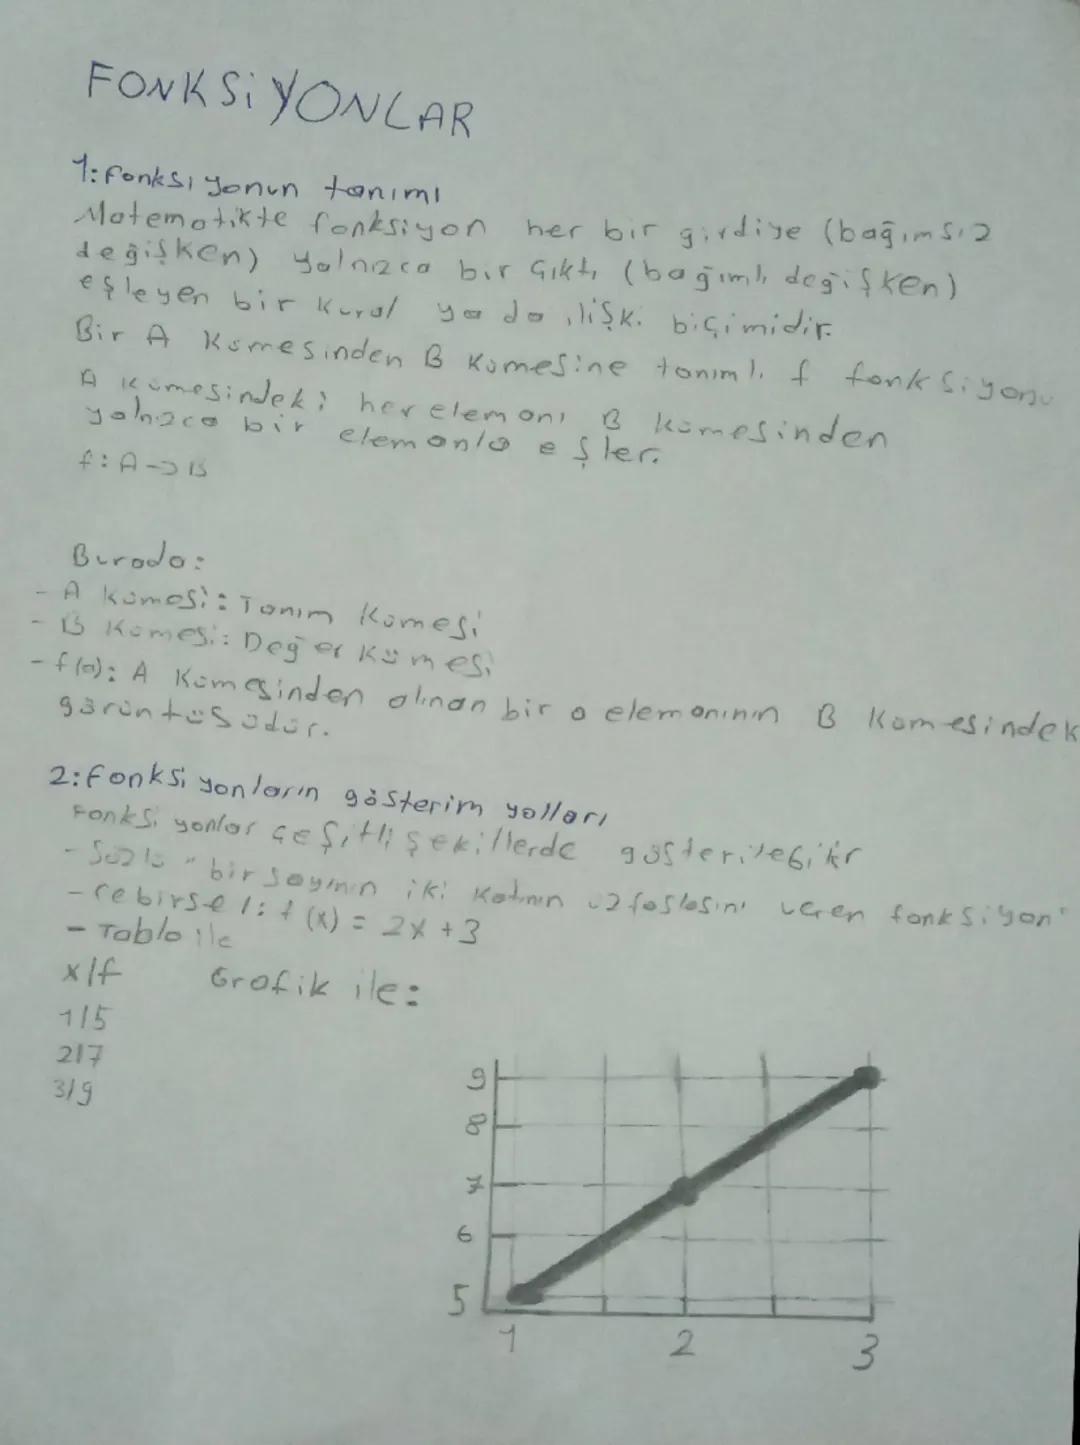 FONKSiYONLAR
1: fonksiyonun tanımı
Matematikte fonksiyon her bir girdiye (bağımsız
değişken) yalnızca bir çıktı (bağımlı değişken)
eşleyen bir kural ya da ilişki biçimidir.
Bir A kümesinden B kümesine tanımlı f fonksiyonu
A kümesindeki her elemanı B kümesinden
yalnızca bir elemanla eşler.
f: A->B
Burada:
- A kümesi: Tanım kümesi
- B kümesi: Değer kümesi
- f(a): A kümesinden alınan bir a elemanının B kümesindek
görüntüsüdür.
2: fonksiyonların gösterim yolları
Fonksiyonlar çeşitli şekillerde gösterilebilir
- Sözlü "bir sayının iki katının üç fazlasını veren fonksiyon"
- cebirsel: f(x) = 2x+3
- Tablo ile
x|f Grafik ile:
1|5
2|7
3|9
9
8
7
6
5
1 2 3